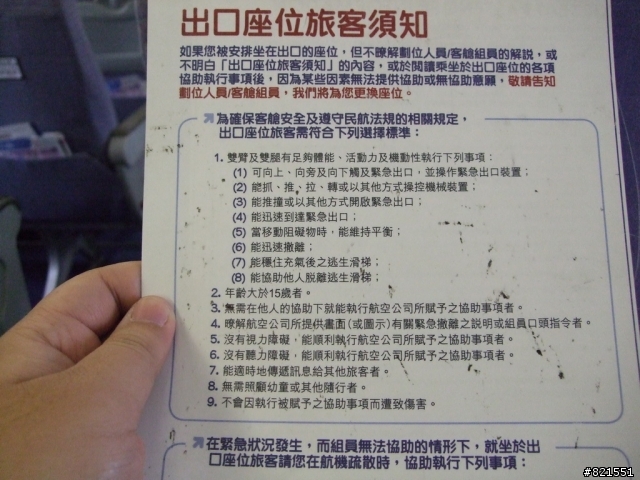 出口座位旅客須知
如果您被安排坐在出口的座位，但不瞭解劃位人員/客艙組員的解說，或
不明白「出口座位旅客須知」的內容，或於閱讀乘坐於出口座位的各項
協助執行事項後，因為某些因素無法提供協助或無協助意願，敬請告知
劃位人員/客艙組員，我們將為您更換座位。
為確保客艙安全及遵守民航法規的相關規定，
出口座位旅客需符合下列選擇標準：
1. 雙臂及雙腿有足夠體能、活動力及機動性執行下列事項：
(1) 可向上、向旁及向下觸及緊急出口，並操作緊急出口裝置；
(2) 能抓、推、拉、轉或以其他方式操控機械裝置；
(3) 能推撞或以其他方式開啟緊急出口；
(4) 能迅速到達緊急出口；
(5) 當移動阻礙物時，能維持平衡；
(6) 能迅速撤離；
(7) 能穩住充氣後之逃生滑梯；
(8) 能協助他人脫離逃生滑梯；
2. 年齡大於15歲者。
3. 無需在他人的協助下就能執行航空公司所賦予之協助事項者。
4. 瞭解航空公司所提供畫面(或圖示)有關緊急撤離之說明或組員口頭指令者。
5. 沒有視力障礙，能順利執行航空公司所賦予之協助事項者。
6. 沒有聽力障礙，能順利執行航空公司所賦予之協助事項者。
7. 能適時地傳遞訊息給其他旅客者。
8. 無需照顧幼童或其他隨行者。
9. 不會因執行被賦予之協助事項而遭致傷害。
在緊急狀況發生，而組員無法協助的情形下，就坐於出
口座位旅客請您在航機疏散時，協助執行下列事項：
#821551